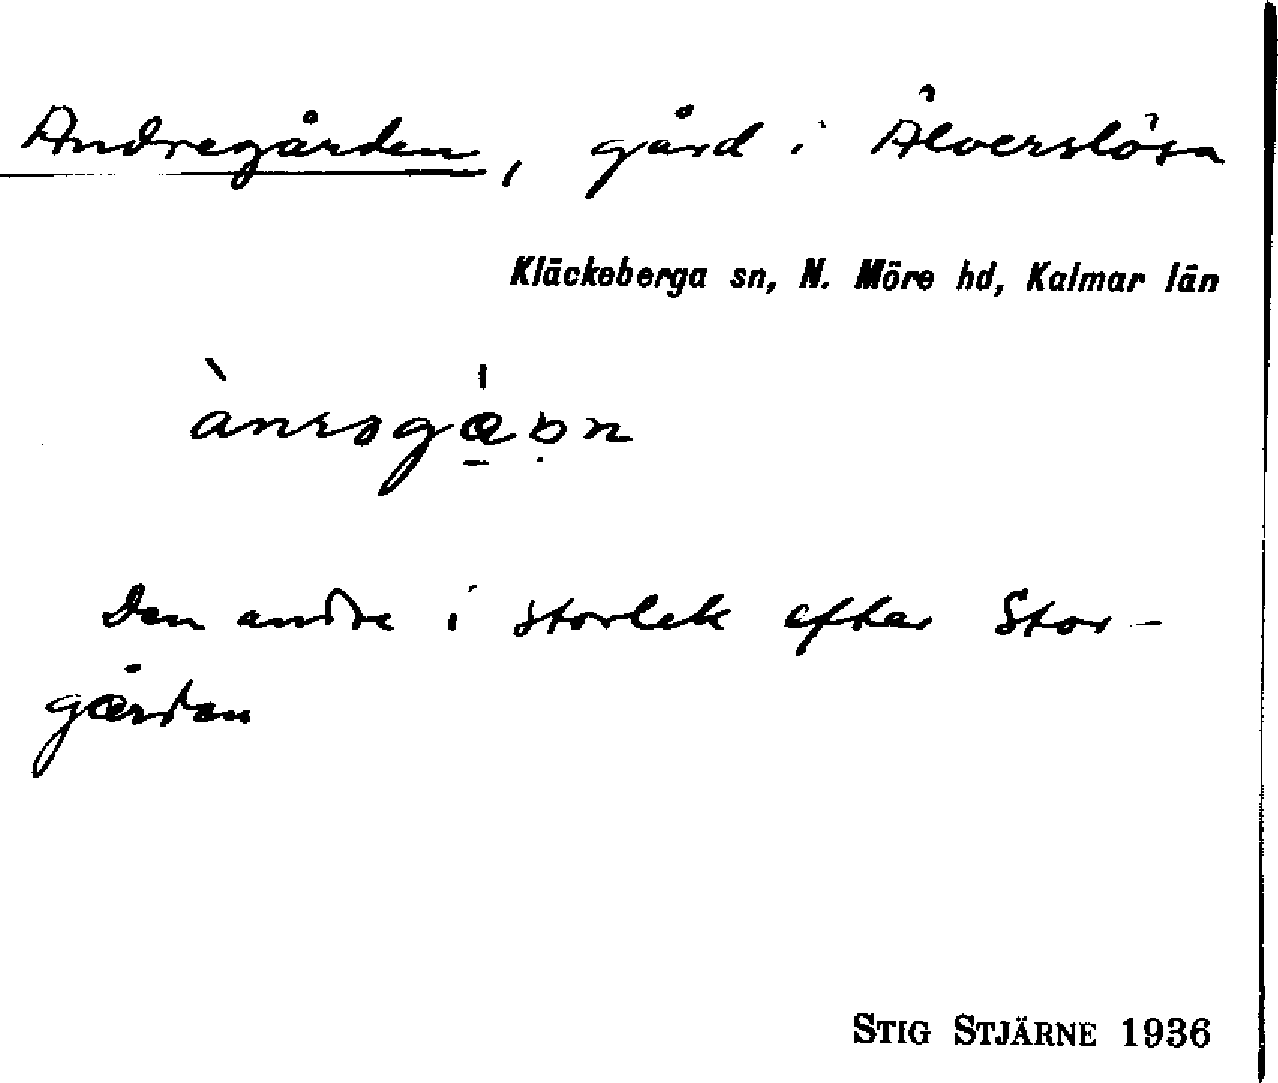 Andregården, gård i Älverslösa
Kläckeberga sn, N. Möre hd, Kalmar län
Den andre i storlek efter Stor-
gården
STIG STJÄRNE 1936